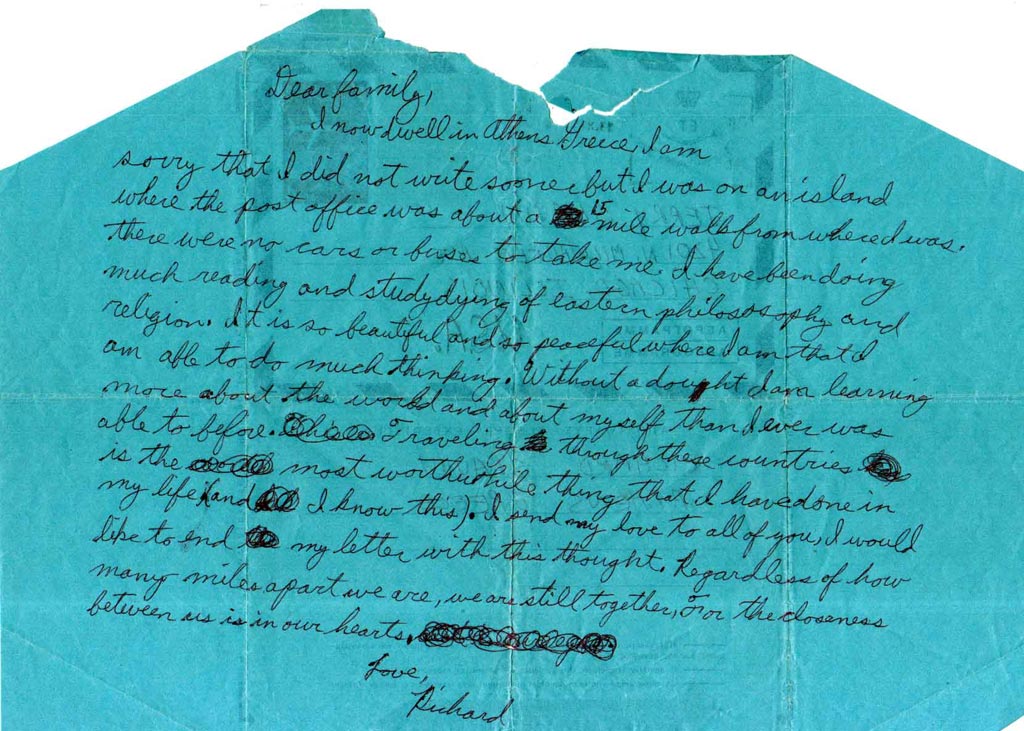 Dear family,
I now dwell in Athens Greece, I am
sorry that I did not write sooner but I was on an island
where the post office was about a 15 mile walk from where I was.
there were no cars or buses to take me. I have been doing
much reading and studydying of eastern philososophy and
religion. It is so beautiful and so peaceful where I am that I
am able to do much thinking. Without a dought I am learning
more about the world and about myself than I ever was
able to before. Traveling through these countries
is the most worthwhile thing that I have done in
my life (and I know this). I send my love to all of you, I would
like to end my letter with this thought. Regardless of how
many miles apart we are, we are still together, for the closeness
between us is in our hearts.
Love,
Richard